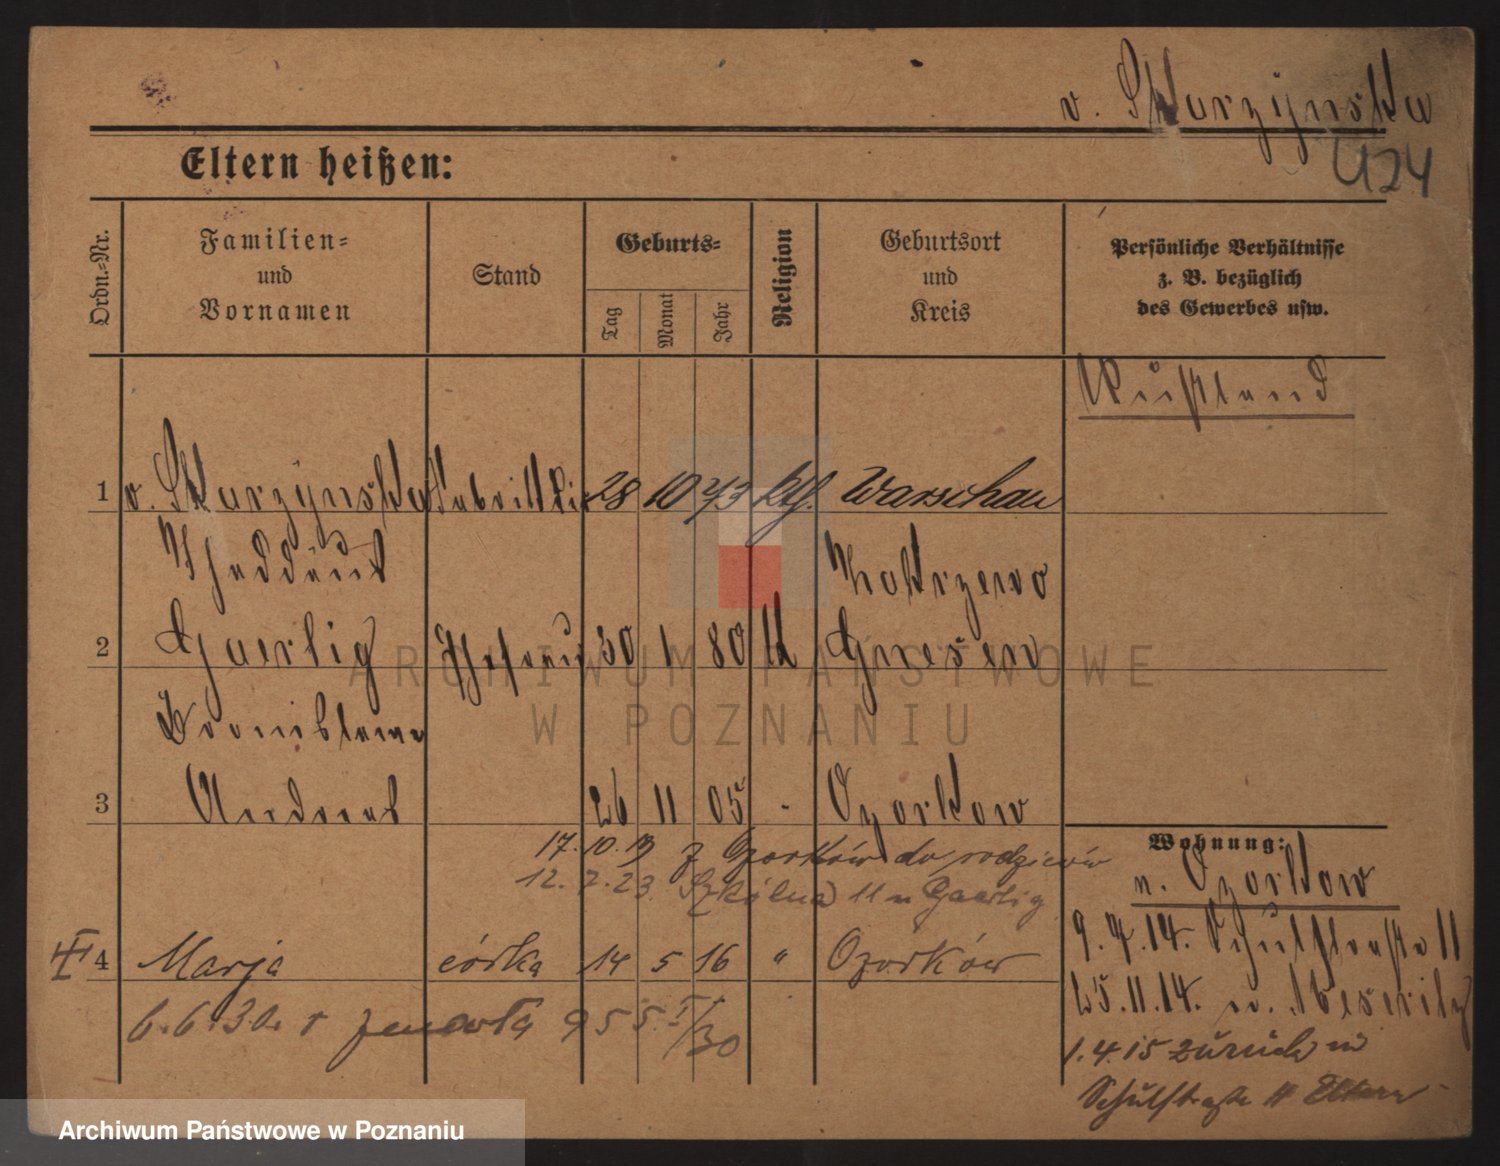 v. Skarzynska
U24
Eltern heißen:
Ordn.-Nr.
Familien-
und
Vornamen
Stand
Geburts-
Tag
Monat
Jahr
Religion
Geburtsort
und
Kreis
Persönliche Verhältnisse
z. B. bezüglich
des Gewerbes usw.
Rußland
1 v. Skarzynska 28 10 73 kth. Warschau
Thaddäus
2 Gaerlig Ehefrau 30 1 80 Gnesen
Bronislawa
3 Andreas 26 11 05 Ozorkow
17.10.19 z Ozorków do rodziców
12. 7. 23. Szkólna 11 u Gaertig
Wohnung:
n. Ozorkow
9. 7. 14. Schulstraße 11
4 Marja córka 14 5 16 " Ozorków
25. 11. 14. n. Meseritz
6. 6. 30. zmarła 955 I/30
1. 4. 15 zurück
Schulstraße 11 Eltern
ARCHIWUM PAŃSTWOWE
W POZNANIU
Archiwum Państwowe w Poznaniu